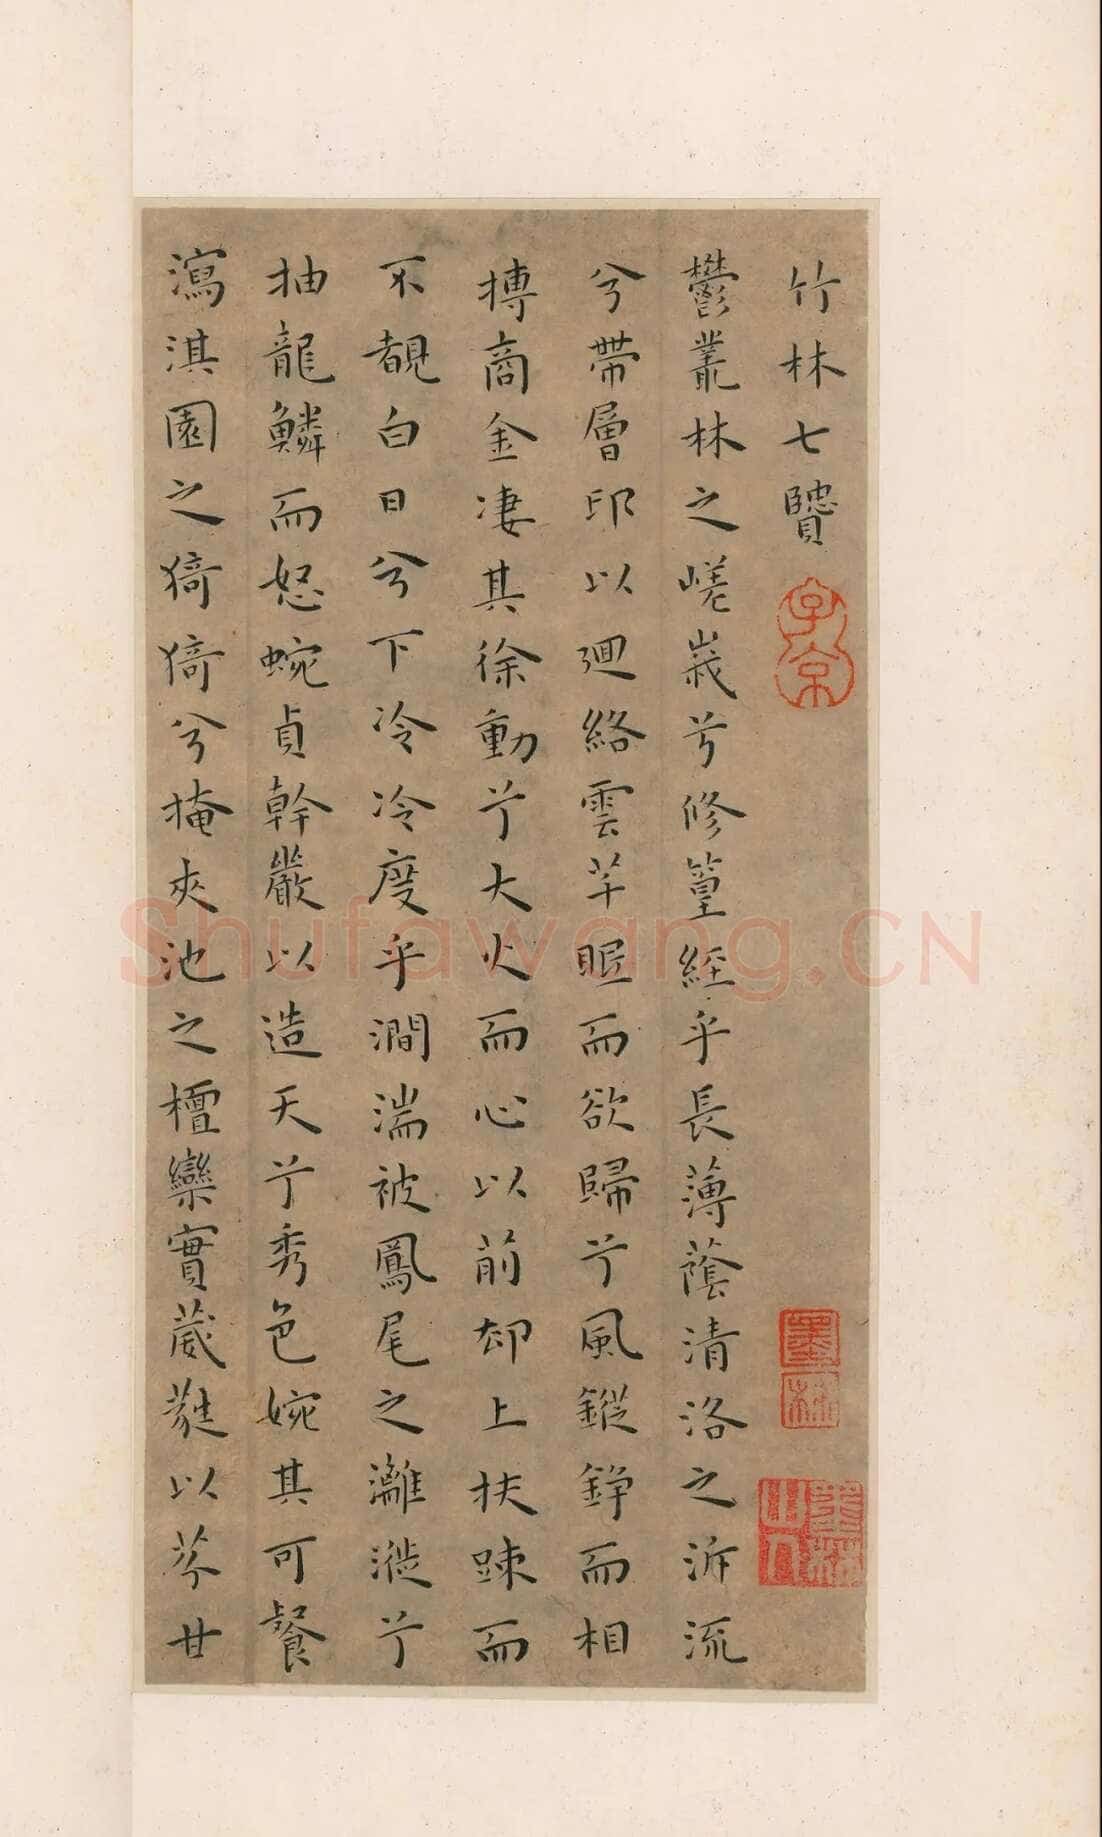 竹林七賢
鬱叢林之嵯峩兮修篁經乎長薄蔭清洛之泝流
兮帶層邛以迴絡雲芊眠而欲歸兮風鏦錚而相
摶商金凄其徐動兮大火而心以前却上扶踈而
不覩白日兮下冷冷度乎澗湍被鳳尾之灕漇兮
抽龍鱗而怒蜿貞幹巖以造天兮秀色婉其可餐
瀉淇園之猗猗兮掩夾池之檀欒實葳蕤以芬甘
子京
墨林
墨林山人
Shufawang.CN